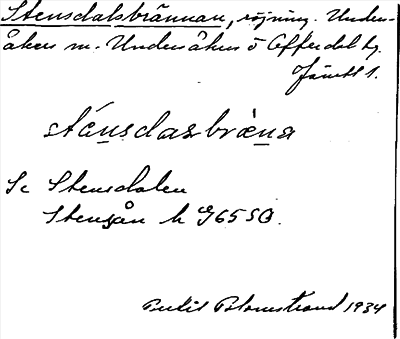 Stensdalsbrännan, röjning. Under-
åkers sn. Undersåkers o Offerdal tg.
Jämtl l.
stǽnsdasbræ̀na
Se Stensdalen
Stensån h 965 SO.
Bertil Blomstrand 1934